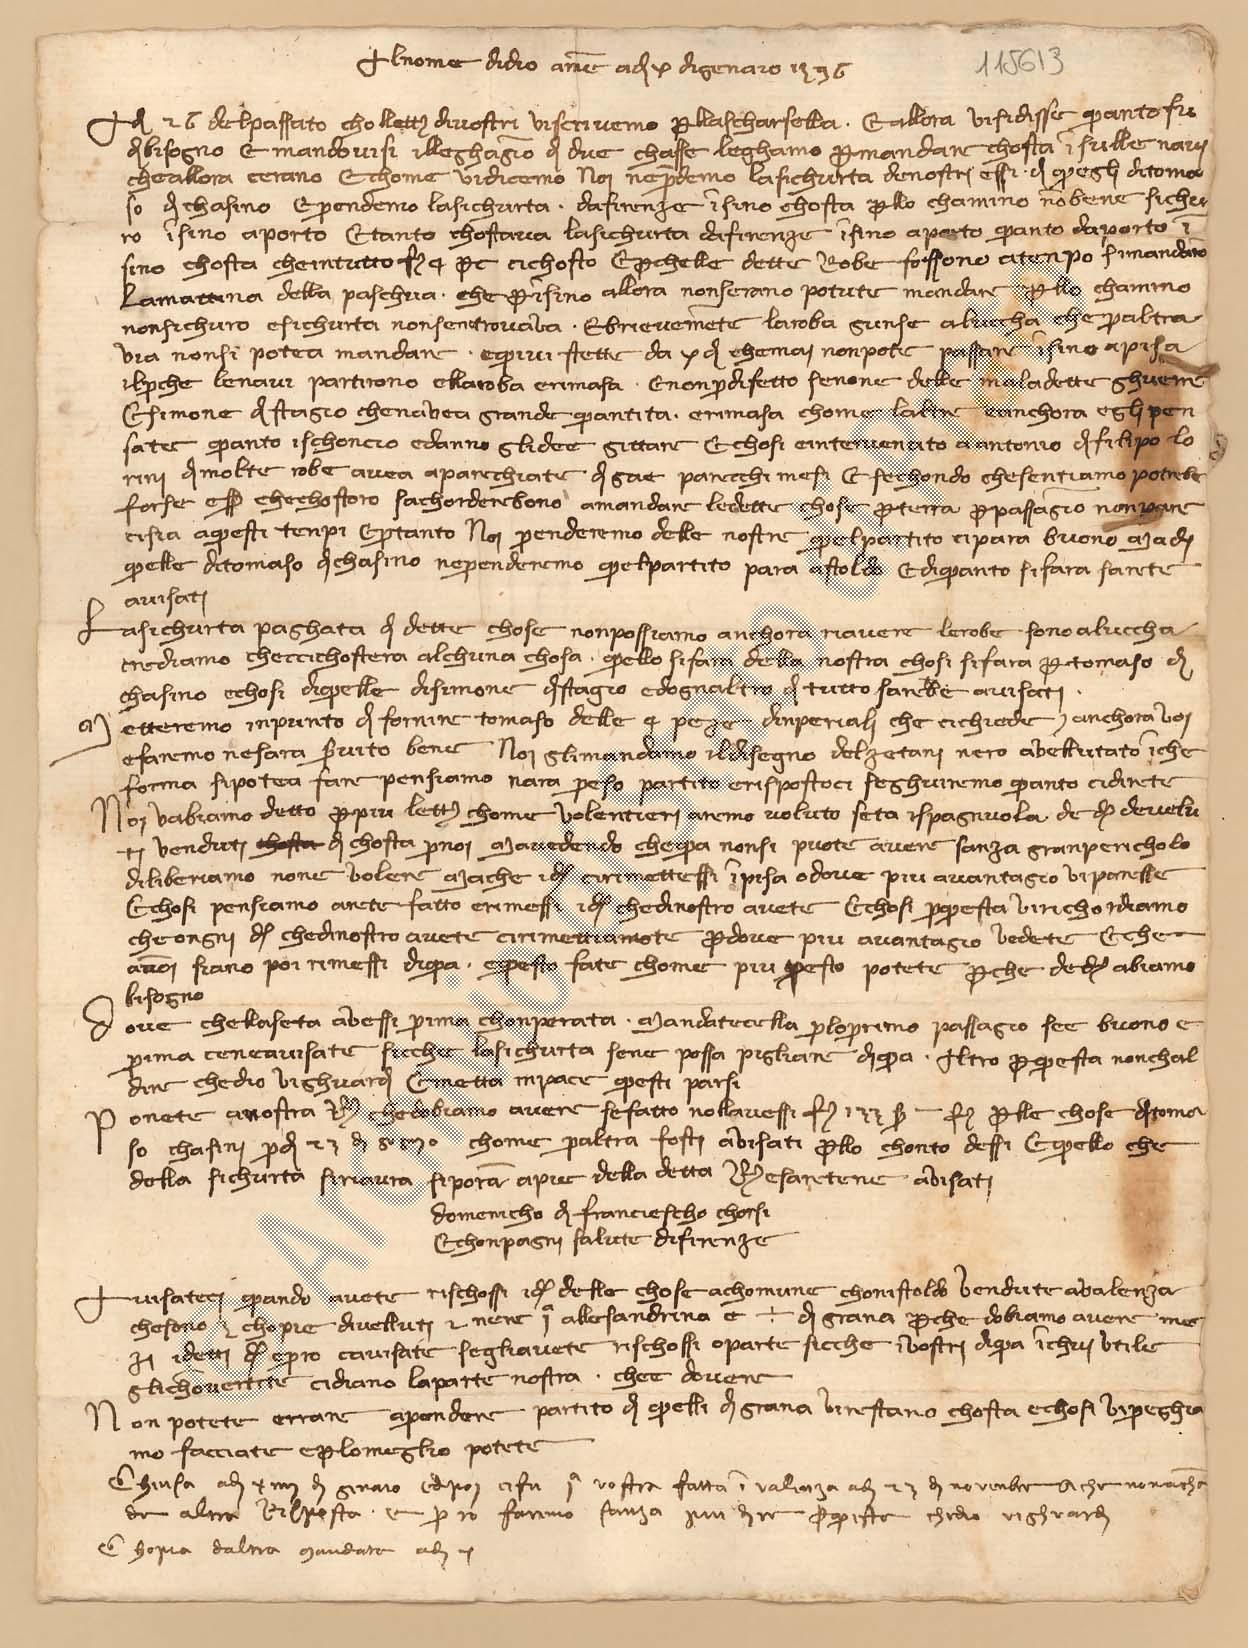 Al nome di dio amē adj x di genaro 1396
115613
A dj 26 del passato cho llettª di vostri vi scrivemo p lla scharsella. E allora vi si disse quanto fu
di bisogno e mandovisi i lleghagio di due chasse leghamo p mandare chostà i sulle navi
che allora cerano e chome vi dicemo noi ne prendemo la sichurtà de nostri essi. di quegli di toma
so di chasino e prendemo la sichurtà. da firenze isino chostà p llo chamino nō bene sichu
ro isino a porto e tanto chostava la sichurtà da firenze isino a porto quanto da porto i
sino chostà che in tutto f 4 p c ci chosto e p chelle dette robe fossono a tenpo si mandaro
la mattina della paschua. che p isino allora non serano potute mandare p llo chamino
non sichuro e sichurtà non sen trovava. E brievemēte la roba gunse a luccha che p altra
via non si potea mandare. e quivi stette da x dj che mai non potè passare isino a pisa
il p che le navi partirono e lla roba e rimasa. E non p difetto se none delle maladette ghuerre
E simone di stagio che navea grande quantità. e rimasa chome laltre e anchora egli pen
sate quanto ischoncio e danno gli dee gittare E chosi e intervenuto a antonio di filipo lo
rini di molte robe avea aparechiate di già parecchi mesi E sechondo che sentiamo potrebe
forse esse che chostoro sachorderebono a mandare le dette chose p terra p passagio non pare
ci sia a questi tenpi E p tanto noi prenderemo delle nostre quel partito ci parà buono Ma di
quelle di tomaso di chasino ne prenderemo quel partito parà a stoldo E di quanto si farà sarete
avisati
La sichurtà paghata di dette chose non possiamo anchora riavere le robe sono a luccha
crediamo che cci chosterà alchuna chosa. quello si farà della nostra chosi si farà p tomaso di
chasino e chosi di quelle di simone di stagio e dognaltro di tutto sarete avisati.
Metteremo in punto di fornire tomaso delle 4 peze dinperiali che ci chiede e anchora voi
e faremo ne sarà servito bene Noi gli mandamo il disegno del zetani nero avellutato i che
forma si potea fare pensiamo narà preso partito e rispostoci seghuiremo quanto ci direte
Noi vabiamo detto p più lettª chome volentieri aremo voluto seta ispagnuola de dr de vellu
ti venduti di chostà p noi Ma vedendo che qua non si puote avere sanza gran pericholo
diliberiamo none volere Ma che i dr ci rimettessi i pisa o dove più avantagio vi paresse
E chosi pensiamo arete fatto e rimessi i dr che di nostro avete E chosi p questa vi richordiamo
che ongni dr che di nostro avete ci rimettiamote p dove più avantagio vedete E che
anoi siano poi rimessi di qua. e questo fate chome più presto potete p che de dr abiamo
bisogno
Dove che lla seta avessi prima chonperata. Mandatecella p lo primo passagio see buono e
prima cene avisate sicche la sichurtà sene possa pigliare di qua. Altro p questa non chal
dire che dio vi ghuardi E metta in pace questi paesi
Ponete a nostra Rne che dobiamo avere se fatto nollavessi p lle chose di toma
so chasini p dj 23 chome p altra fosti avisati p llo chonto dessi E quello che
della sichurtà si riavrà si porrà a piè della detta Rne e saretene avisati
domenicho di franciescho chorsi
E chonpagni salute di firenze
Avisateci quando avete rischossi i dr delle chose a chomune chonistoldo vendute a valenza
che sono 3 chopie di velluti 2 nere 1 allesandrina e di grana p che dobiamo avere me
zi i detti dr e p ro cavisate se gli avete rischossi o parte sicche i vostri di qua i chui utile
gli chovertite ci diano la parte nostra. che e dovere
Non potete errare a prendere partito di quelli di grana vi restano chostà e chosi vi preghia
mo facciate e p lo meglio potete
Chiusa adj xiiij di genaio e dipoi ci fu 1 vostra fatta i valenza adj 23 di novenbre A che non achade
de altra Risposta. e p ro faremo sanza più dire p questa che dio vi ghuardi
Chopia daltra mandata adj x